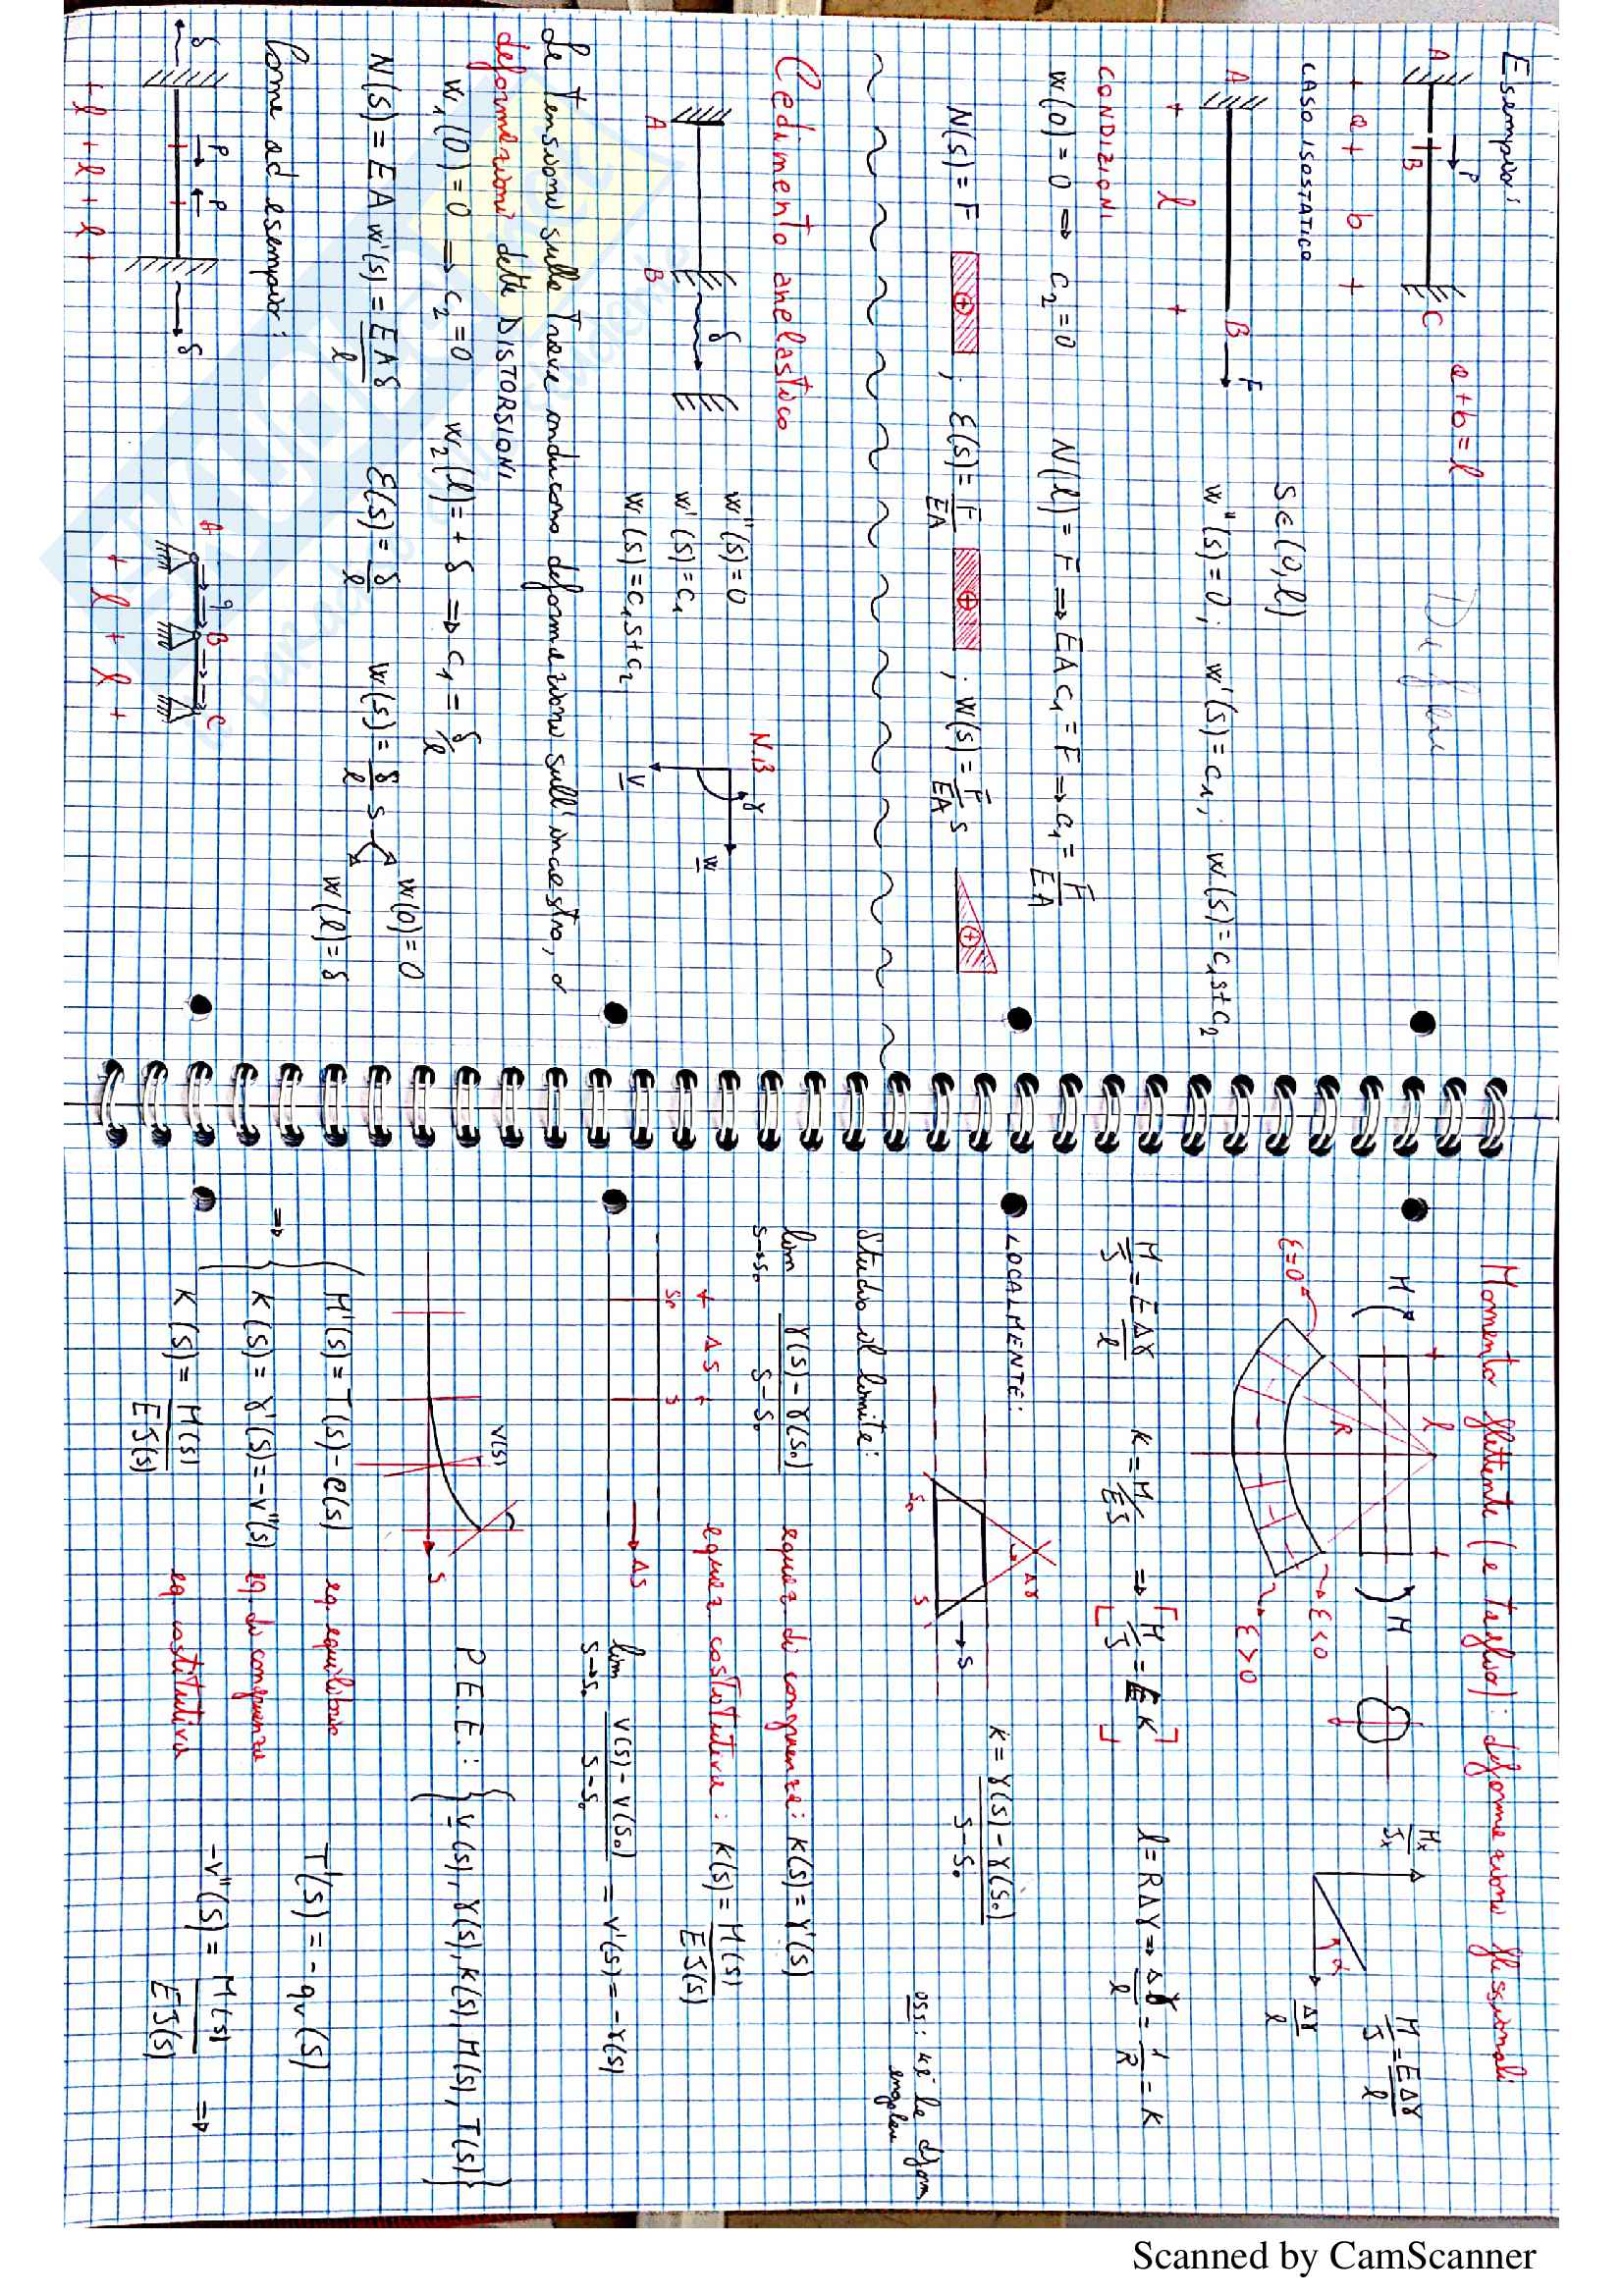 Esempio:
A B P C
a + b = l
+ a + b +
CASO ISOSTATICO
S∈(0,l)
A B F
w''(s)=0; w'(s)=c₁; w(s)=c₁s+c₂
+ l +
CONDIZIONI
w(0)=0 ⇒ c₂=0 N(l)=F ⇒ EAc₁=F ⇒ c₁=F/EA
N(s)=F ⊕ ; ε(s)=F/EA ⊕ ; w(s)=F/EA s ⊕
Cedimento anelastico
N.B
A B δ
w''(s)=0
w'(s)=c₁
w(s)=c₁s+c₂
γ w v
Le tensioni sulla trave inducono deformazioni sull'incastro, o
deformazioni dette DISTORSIONI
w₁(0)=0 ⇒ c₂=0 w₂(l)=+δ ⇒ c₁=δ/l
N(s)=EAw'(s)=EAδ/l ε(s)=δ/l w(s)=δ/l s
w(0)=0
w(l)=δ
Come ad esempio:
δ P P δ
+ l + l + l +
A q B C
+ l + l +
Momento flettente (e taglio): deformazione flessionali
M l M
R
ε=0
ε<0
ε>0
Mx/Jx
α
Δγ/l
M/J=EΔγ/l
M/J=EΔγ/l K=M/EJ ⇒ [M/J=EK] l=RΔγ ⇒ Δγ/l=1/R=K
LOCALMENTE:
Δγ
S₀ S
S
K=γ(s)-γ(s₀)/s-s₀
oss: k è la deform
angolare
Studio il limite:
lim s→s₀ γ(s)-γ(s₀)/s-s₀ equaz di congruenza: K(s)=γ'(s)
equaz costitutiva: K(s)=M(s)/EJ(s)
+ ΔS +
S₀ S
ΔS
lim s→s₀ v(s)-v(s₀)/s-s₀ = v'(s)=-γ(s)
v(s)
S
P.E.E.: {v(s), γ(s), K(s), M(s), T(s)}
⇒ { M'(s)=T(s)-e(s) eq. equilibrio T'(s)=-qv(s)
K(s)=γ'(s)=-v''(s) eq. di congruenza
K(s)=M(s)/EJ(s) eq. costitutiva -v''(s)=M(s)/EJ(s) ⇒
Scanned by CamScanner